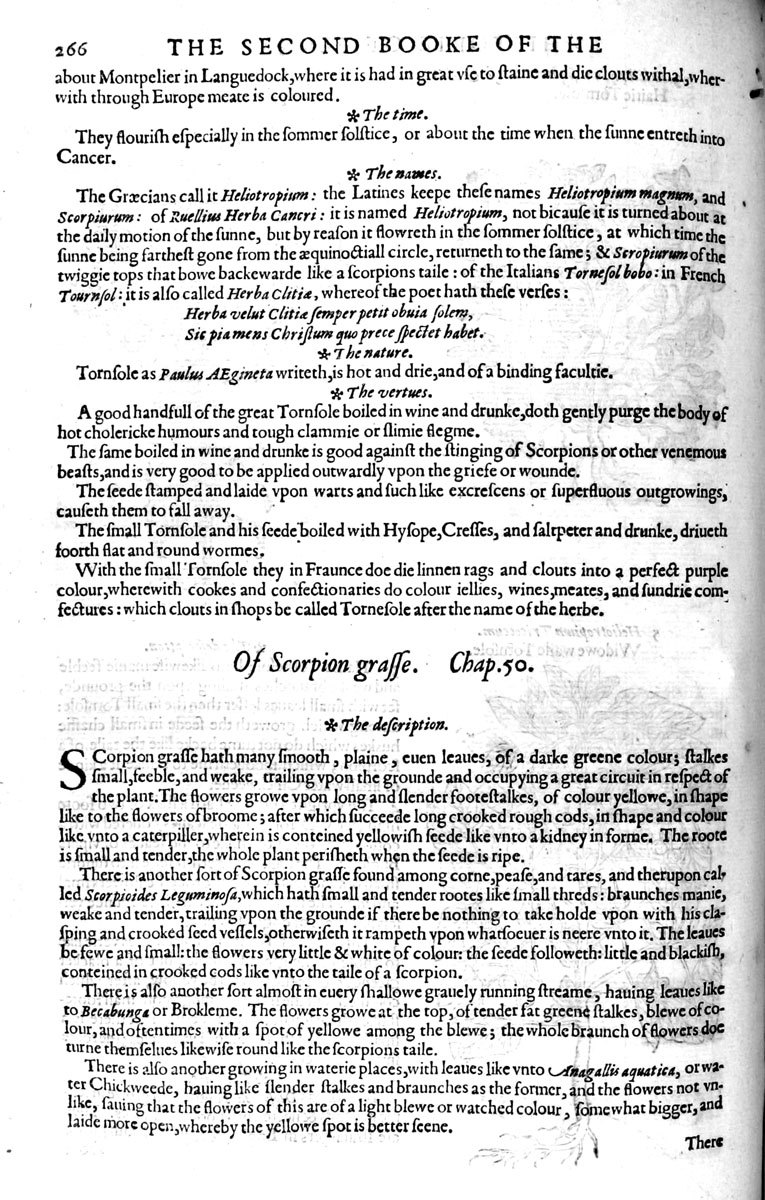 266 THE SECOND BOOKE OF THE
about Montpelier in Languedock,where it is had in great vſe to ſtaine and die clouts withal,wher-
with through Europe meate is coloured.
✻ The time.
They flouriſh eſpecially in the ſommer ſolſtice, or about the time when the ſunne entreth into
Cancer.
✻ The names.
The Græcians call it Heliotropium: the Latines keepe theſe names Heliotropium magnum, and
Scorpiurum: of Ruellius Herba Cancri: it is named Heliotropium, not bicauſe it is turned about at
the daily motion of the ſunne, but by reaſon it flowreth in the ſommer ſolſtice, at which time the
ſunne being fartheſt gone from the æquinoctiall circle, returneth to the ſame; & Scropiurum of the
twiggie tops that bowe backewarde like a ſcorpions taile: of the Italians Torneſol bobo: in French
Tournſol: it is alſo called Herba Clitiæ, whereof the poet hath theſe verſes:
Herba velut Clitiæ ſemper petit obuia ſolem,
Sic pia mens Chriſtum quo prece ſpectet habet.
✻ The nature.
Tornſole as Paulus AEgineta writeth,is hot and drie,and of a binding facultie.
✻ The vertues.
A good handfull of the great Tornſole boiled in wine and drunke,doth gently purge the body of
hot cholericke humours and tough clammie or ſlimie flegme.
The ſame boiled in wine and drunke is good againſt the ſtinging of Scorpions or other venemous
beaſts,and is very good to be applied outwardly vpon the griefe or wounde.
The ſeede ſtamped and laide vpon warts and ſuch like excreſcens or ſuperfluous outgrowings,
cauſeth them to fall away.
The ſmall Tornſole and his ſeede boiled with Hyſope,Creſſes, and ſaltpeter and drunke, driueth
foorth flat and round wormes.
With the ſmall Tornſole they in Fraunce doe die linnen rags and clouts into a perfect purple
colour,wherewith cookes and confectionaries do colour iellies, wines,meates, and ſundrie com-
fectures: which clouts in ſhops be called Torneſole after the name of the herbe.
Of Scorpion graſſe. Chap.50.
✻ The deſcription.
SCorpion graſſe hath many ſmooth, plaine, euen leaues, of a darke greene colour; ſtalkes
ſmall,feeble,and weake, trailing vpon the grounde and occupying a great circuit in reſpect of
the plant.The flowers growe vpon long and ſlender footeſtalkes, of colour yellowe, in ſhape
like to the flowers of broome; after which ſucceede long crooked rough cods, in ſhape and colour
like vnto a caterpiller,wherein is conteined yellowiſh ſeede like vnto a kidney in forme. The roote
is ſmall and tender,the whole plant periſheth when the ſeede is ripe.
There is another ſort of Scorpion graſſe found among corne,peaſe,and tares, and therupon cal-
led Scorpioides Leguminoſa,which hath ſmall and tender rootes like ſmall threds: braunches manie,
weake and tender,trailing vpon the grounde if there be nothing to take holde vpon with his cla-
ſping and crooked ſeed veſſels,otherwiſeth it rampeth vpon whatſoeuer is neere vnto it. The leaues
be fewe and ſmall: the flowers very little & white of colour: the ſeede followeth: little and blackiſh,
conteined in crooked cods like vnto the taile of a ſcorpion.
There is alſo another ſort almoſt in euery ſhallowe grauely running ſtreame, hauing leaues like
to Becabunga or Brokleme. The flowers growe at the top, of tender fat greene ſtalkes, blewe of co-
lour, and oftentimes with a ſpot of yellowe among the blewe; the whole braunch of flowers doe
turne themſelues likewiſe round like the ſcorpions taile.
There is alſo another growing in waterie places,with leaues like vnto Anagallis aquatica, or wa-
ter Chickweede, hauing like ſlender ſtalkes and braunches as the former, and the flowers not vn-
like, ſauing that the flowers of this are of a light blewe or watched colour, ſomewhat bigger, and
laide more open,whereby the yellowe ſpot is better ſeene.
There